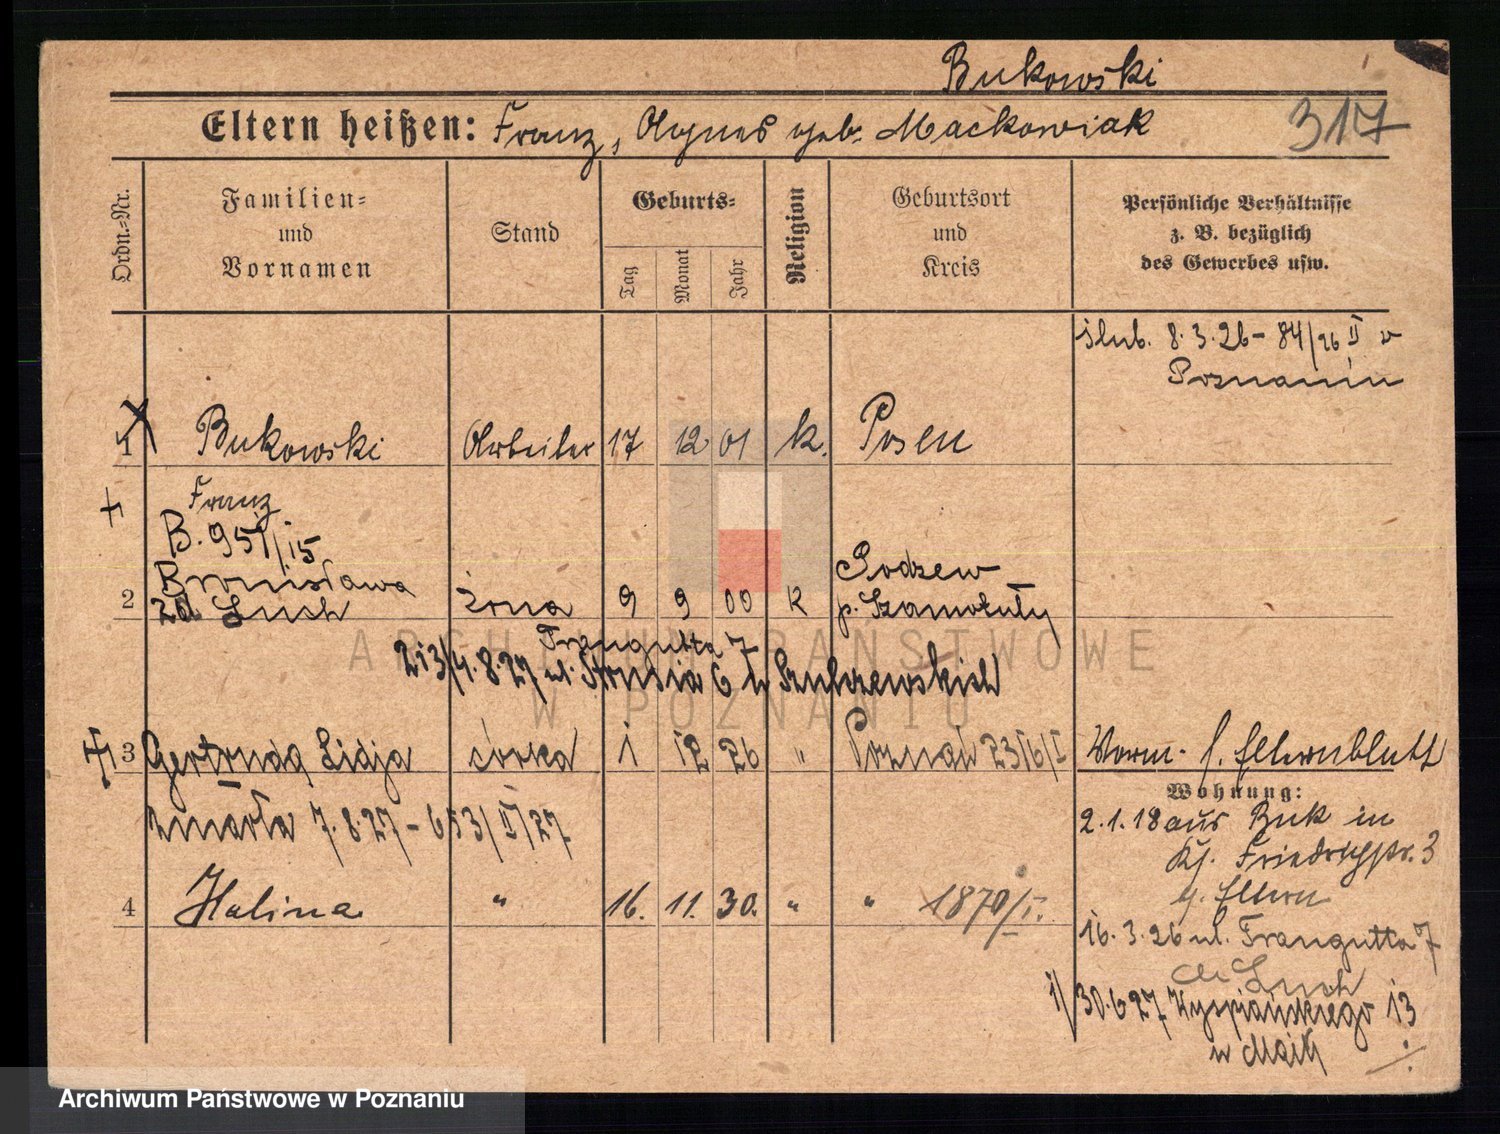 Bukowski
Eltern heißen: Franz, Agnes geb. Mackowiak
317
Ordn.-Nr.
Familien-
und
Vornamen
Stand
Geburts-
Tag
Monat
Jahr
Religion
Geburtsort
und
Kreis
Persönliche Verhältnisse
z. B. bezüglich
des Gewerbes usw.
ślub. 8.3.26 - 84/26 II w
Poznaniu
1 Bukowski Arbeiter 17 12 01 k. Posen
Franz
B. 951/15
2 Bronisława żona 9 9 00 k Podrzew
zd Luch p. Szamotuły
Traugutta 7
2 i 3/4.8.27 ul. Strusia 6 Szulczewskich
3 Gertruda Lidja córka 1 12 26 " Poznań 2316/I
zmarła 7.8.27 - 653/II/27
4 Halina " 16. 11. 30. " " 1870/I.
Vorm. s. Elternblatt
Wohnung:
2.1.18 aus Buk in
Friedrichstr. 3
b. Eltern
16.3.26 ul. Traugutta 7
Luch
1/30.6.27 Wyspiańskiego 13
ARCHIWUM PAŃSTWOWE
W POZNANIU
Archiwum Państwowe w Poznaniu